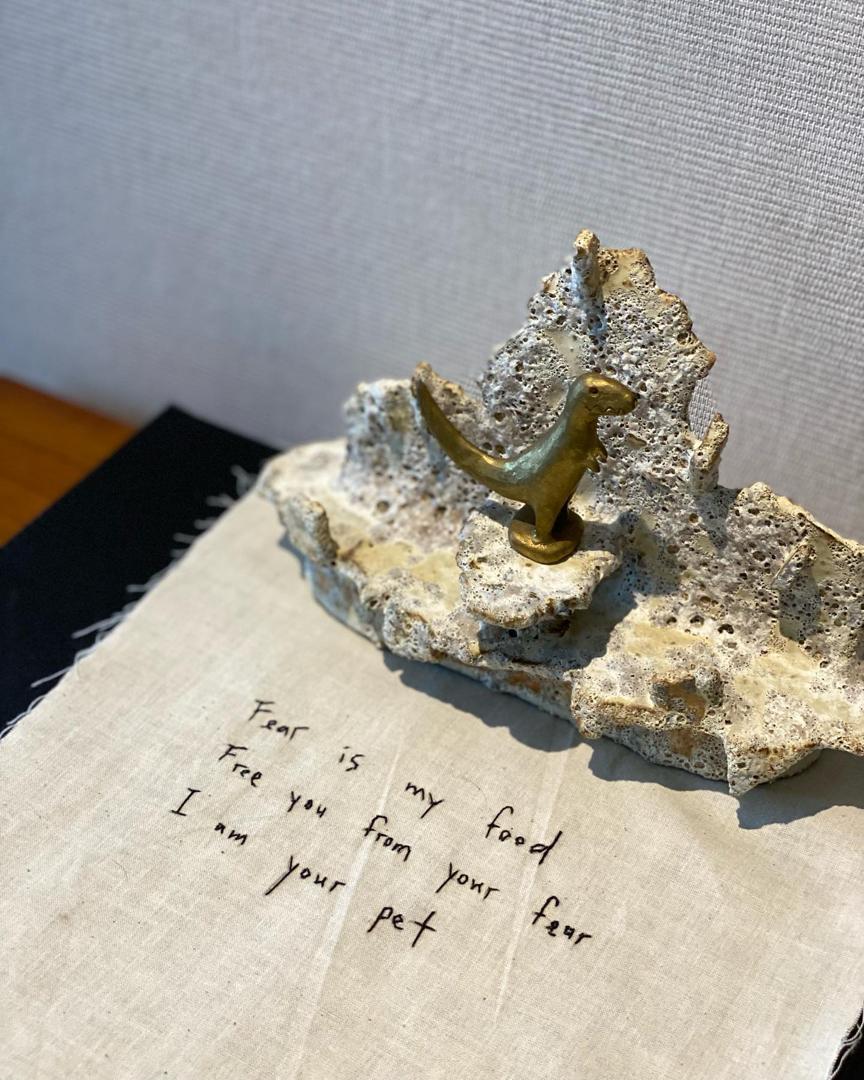 Fear is my food
Free you from your fear
I am your pet